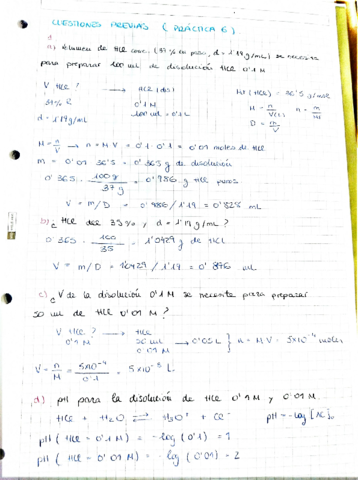 CUESTIONES PREVIAS (PRÁCTICA 6)
a) Volumen de HCl conc. (37% en peso, d = 1'19 g/mL) se necesita
para preparar 100 mL de disolución HCl 0'1 M
V HCl? → HCl (dis)
37%
0'1 M
100 mL = 0'1 L
d = 1'19 g/mL
M = n/V(L)
n = m/Mr
D = m/V
M = n/V → n = M·V = 0'1·0'1 = 0'01 moles de HCl
m = 0'01·36'5 = 0'365 g de disolución
0'365 · 100 g/37 g = 0'986 g HCl puros
V = m/D = 0'986/1'19 = 0'828 mL
b) ¿HCl del 35% y d = 1'19 g/mL?
0'365 · 100/35 = 1'0429 g de HCl
V = m/D = 1'0429/1'19 = 0'876 mL
c) ¿V de la disolución 0'1 M se necesita para preparar
50 mL de HCl 0'01 M?
V HCl? → HCl
0'1 M
50 mL → 0'05 L
0'01 M
n = M·V = 5x10⁻⁴ moles
V = n/M = 5x10⁻⁴/0'1 = 5x10⁻³ L
d) pH para la disolución de HCl 0'1 M y 0'01 M
HCl + H₂O ⇌ H₃O⁺ + Cl⁻
pH (HCl - 0'1 M) = -log (0'1) = 1
pH (HCl - 0'01 M) = -log (0'01) = 2